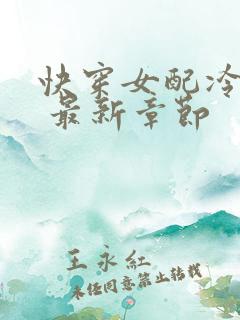 快穿女配冷
最新章节
王永红
未经同意禁止转载